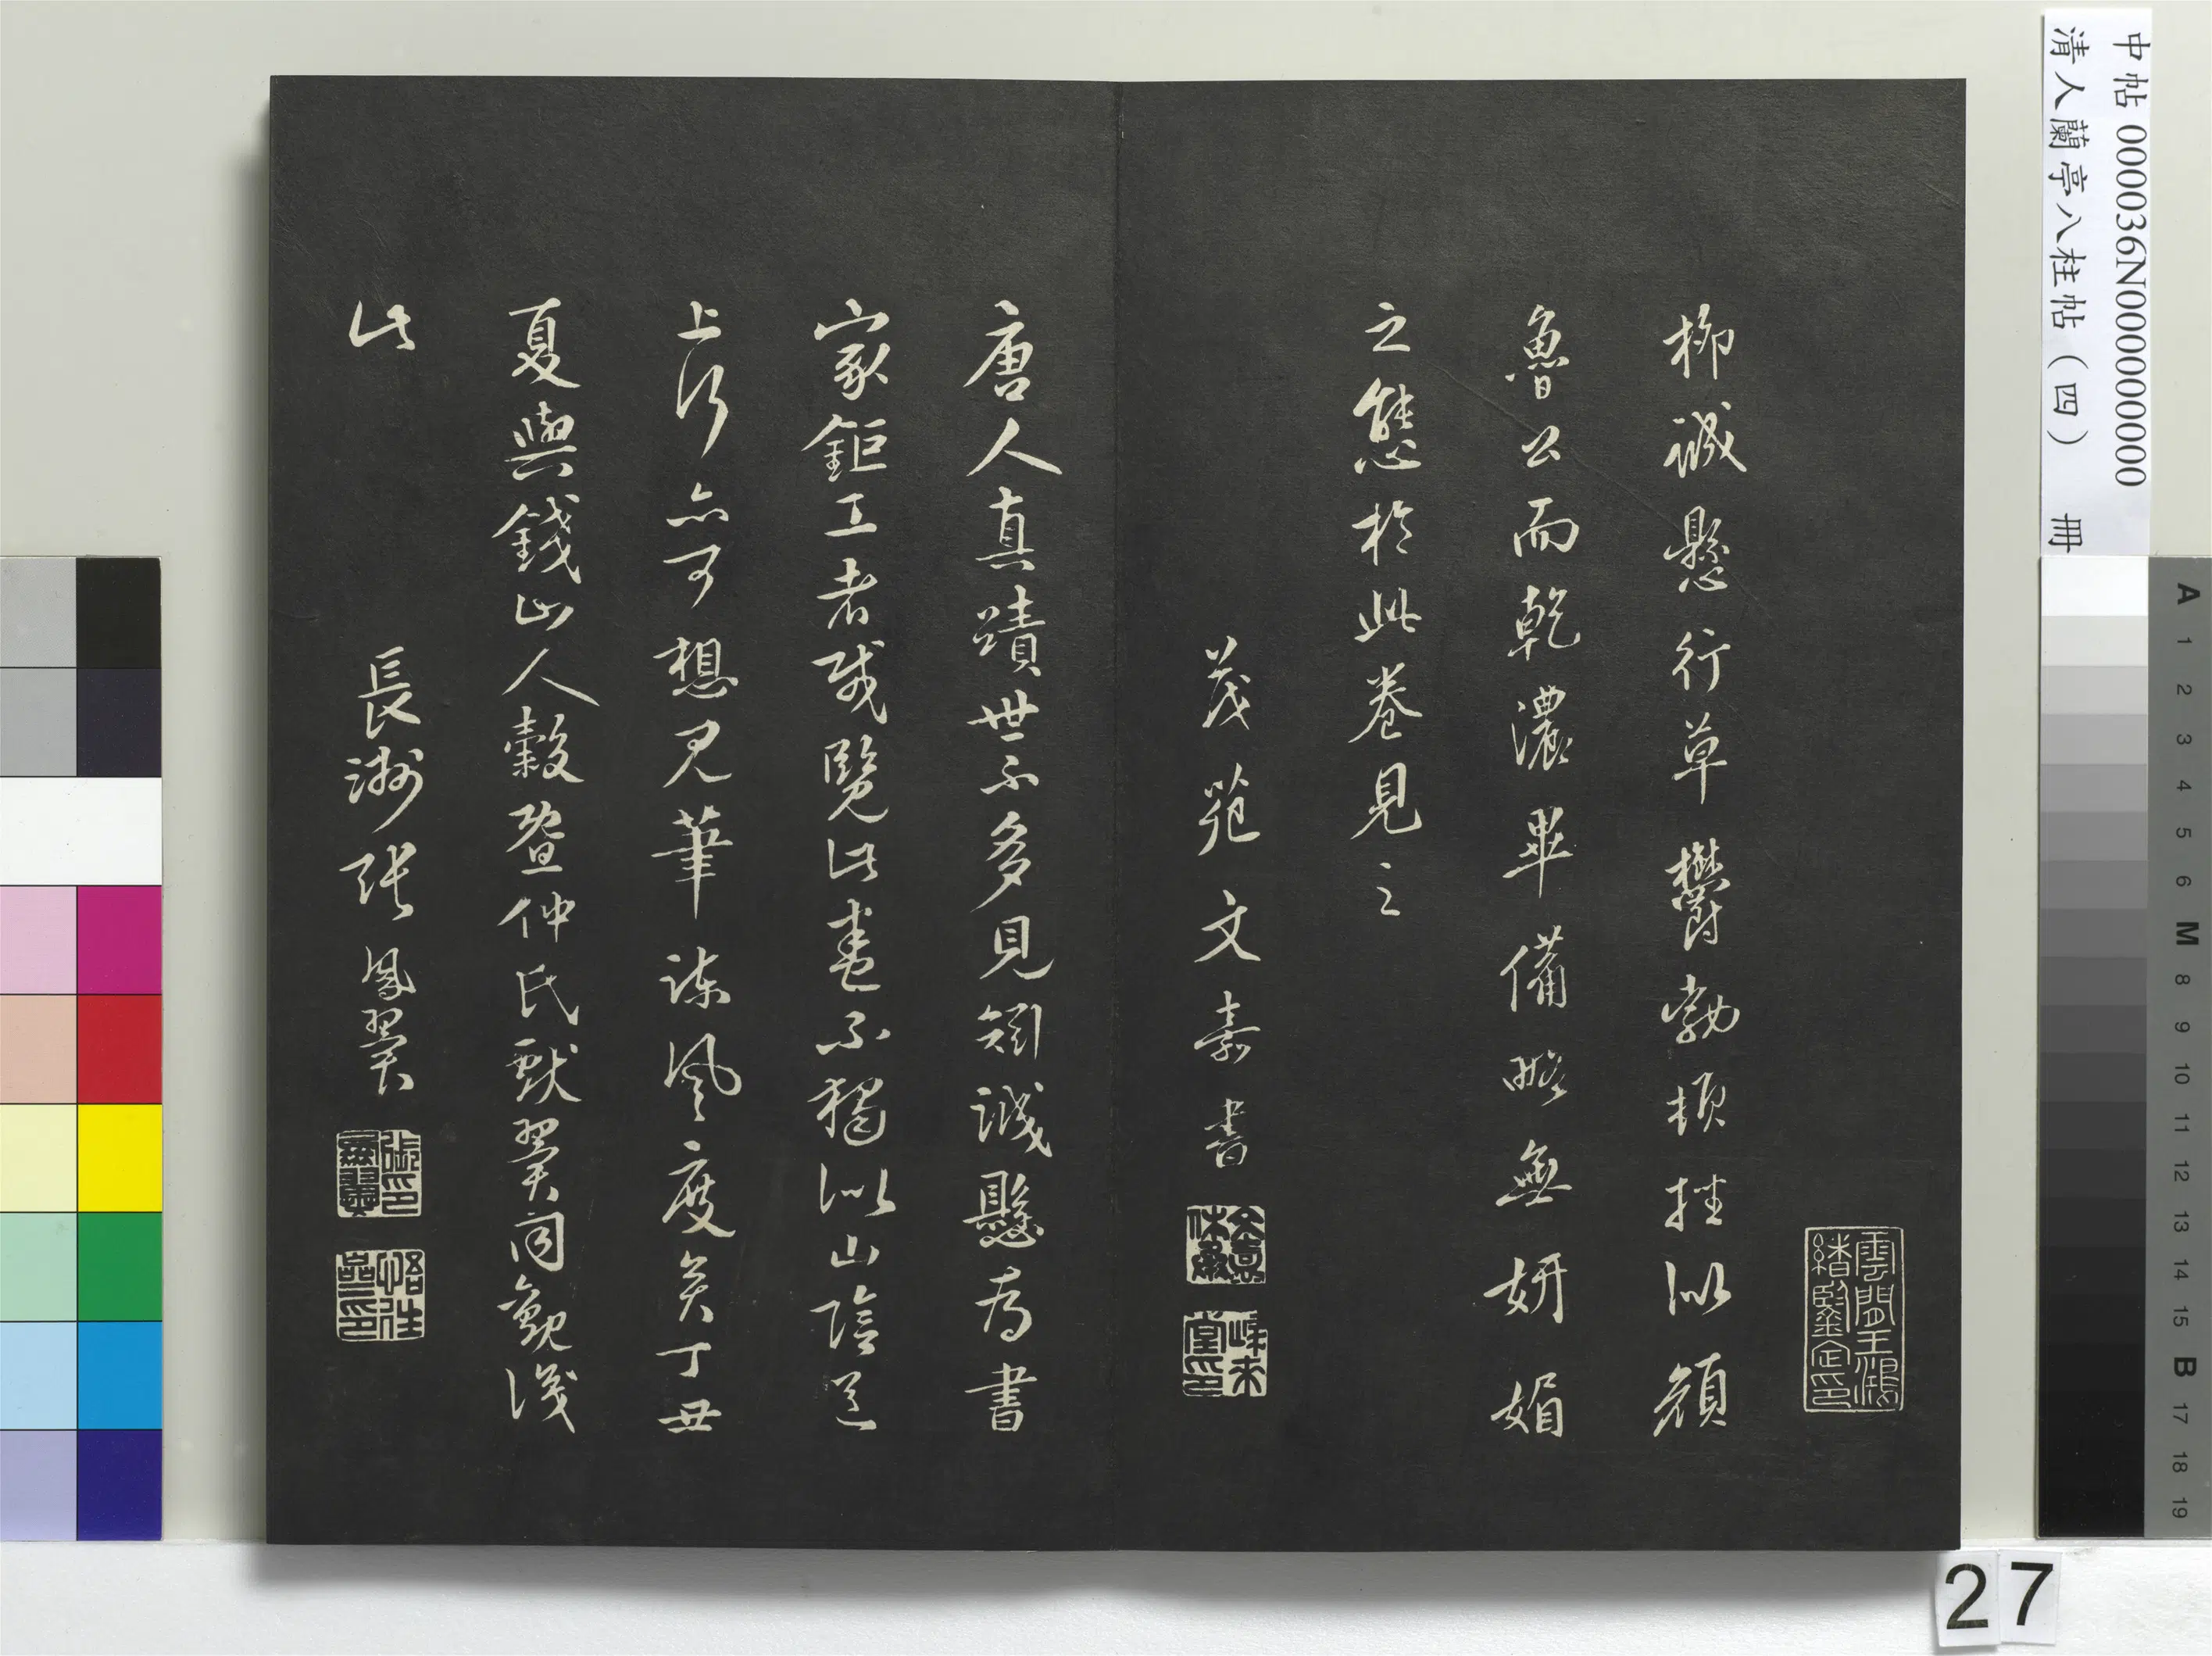 中帖 000036N000000000
清人蘭亭八柱帖（四） 冊
雲間王鴻緒鑒定印
柳誠懸行草欝勃頓挫似顏
魯公而乾濃畢備略無妍媚
之態於此卷見之
茂苑文嘉書
文嘉休承
唐人真蹟世不多見矧誠懸為書
家鉅工者哉覽此書不獨似山陰道
上行亦可想見筆諫風度矣丁丑
夏與錢山人穀暨仲氏獻翼同觀識
此
長洲張鳳翼
A 1 2 3 4 5 6 M 8 9 10 11 12 13 14 15 B 17 18 19
27